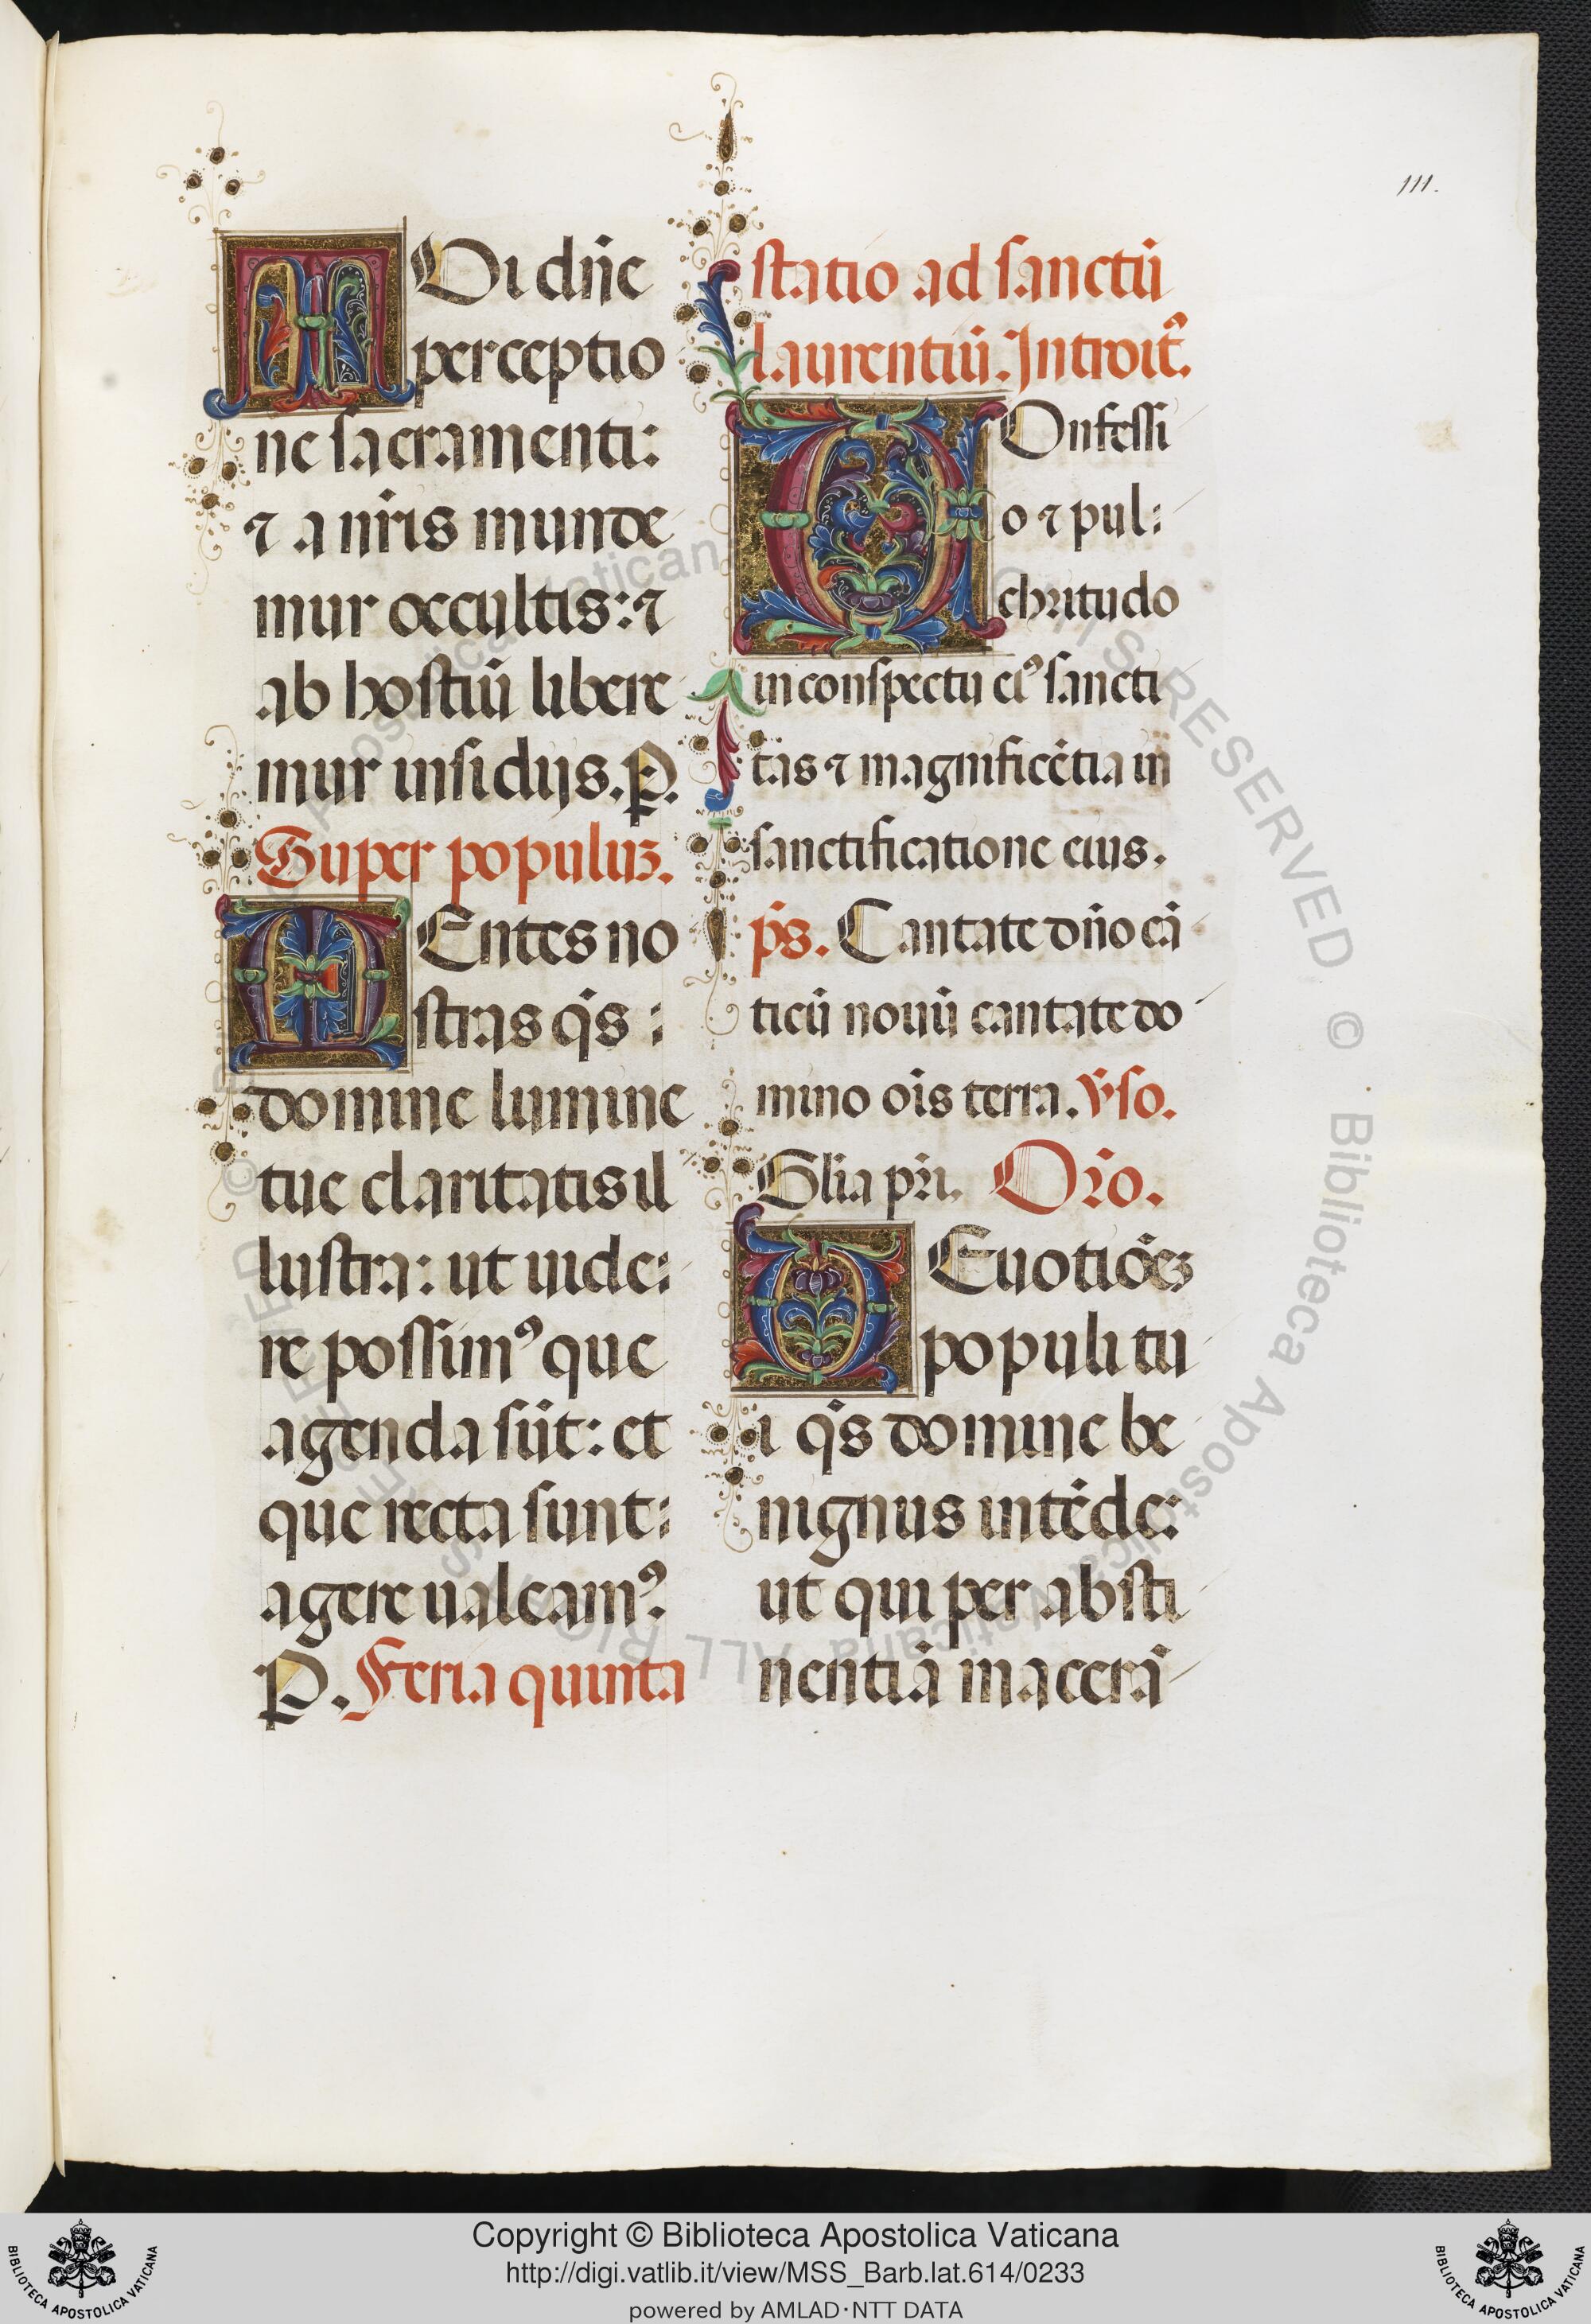 111.
TUi dñe
perceptio
ne sacramenti:
⁊ a nr̃is munde
mur occultis: ⁊
ab hostiũ libere
mur insidijs. P.
Super populuz.
MEntes no
stras q̃s :
domine lumine
tue claritatis il
lustra: ut uide:
re possimꝰ que
agenda sũt: et
que recta sunt:
agere ualeamꝰ.
P. Feria quinta
statio ad sanctũ
laurentiũ. Introitꝰ.
COnfessi
o ⁊ pul:
chritudo
in conspectu eiꝰ sancti
tas ⁊ magnificẽtia in
sanctificatione eius.
p̃s. Cantate dño cã
ticũ nouũ cantate do
mino oĩs terra. v̾so.
Glia pr̃i. Or̃o.
DEuotiões
populi tu
i q̃s domine be
nignus intẽde:
ut qui per absti
nentiã macerã
© Biblioteca Apostolica Vaticana ALL RIGHTS RESERVED
Copyright © Biblioteca Apostolica Vaticana
http://digi.vatlib.it/view/MSS_Barb.lat.614/0233
powered by AMLAD·NTT DATA
BIBLIOTECA APOSTOLICA VATICANA
BIBLIOTECA APOSTOLICA VATICANA